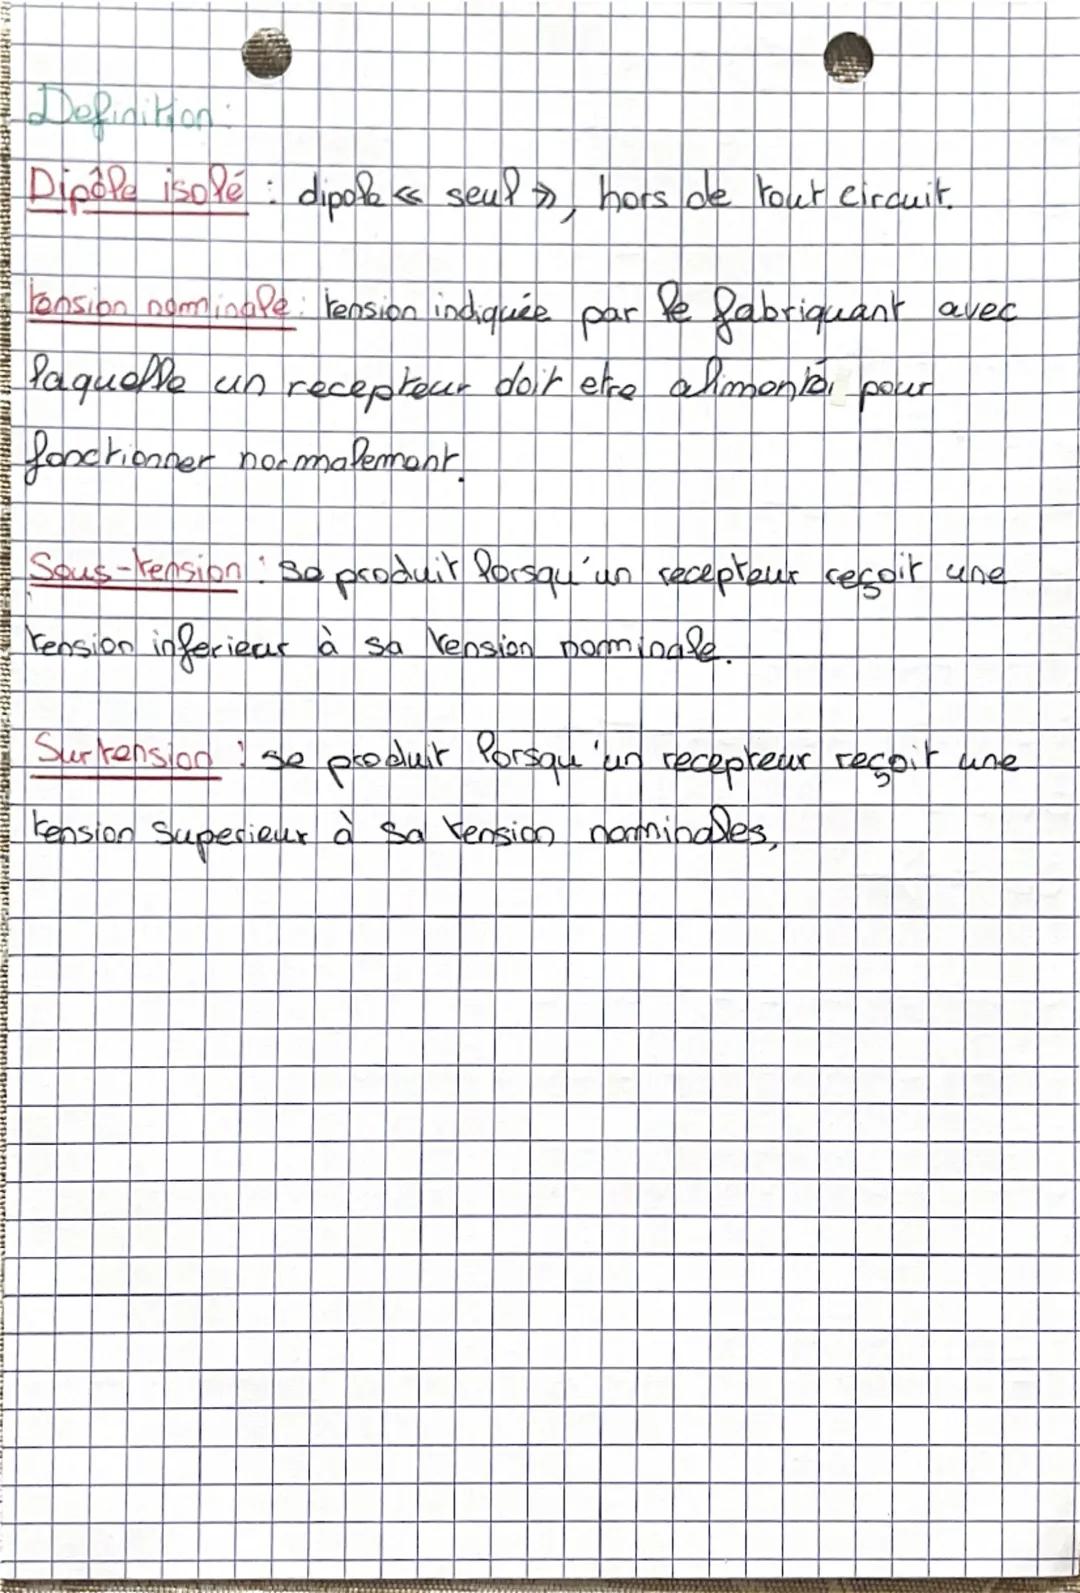 Definition :
Dipôle isolé : dipole « seul », hors de tout circuit.
tension nominale : tension indiquée par le fabriquant avec
laquelle un recepteur doit etre alimenté pour
fonctionner normalement.
Sous-tension : se produit lorsqu'un recepteur reçoit une
tension inferieur à sa tension nominale.
Surtension : se produit lorsqu'un recepteur reçoit une
tension superieur à sa tension nominales,